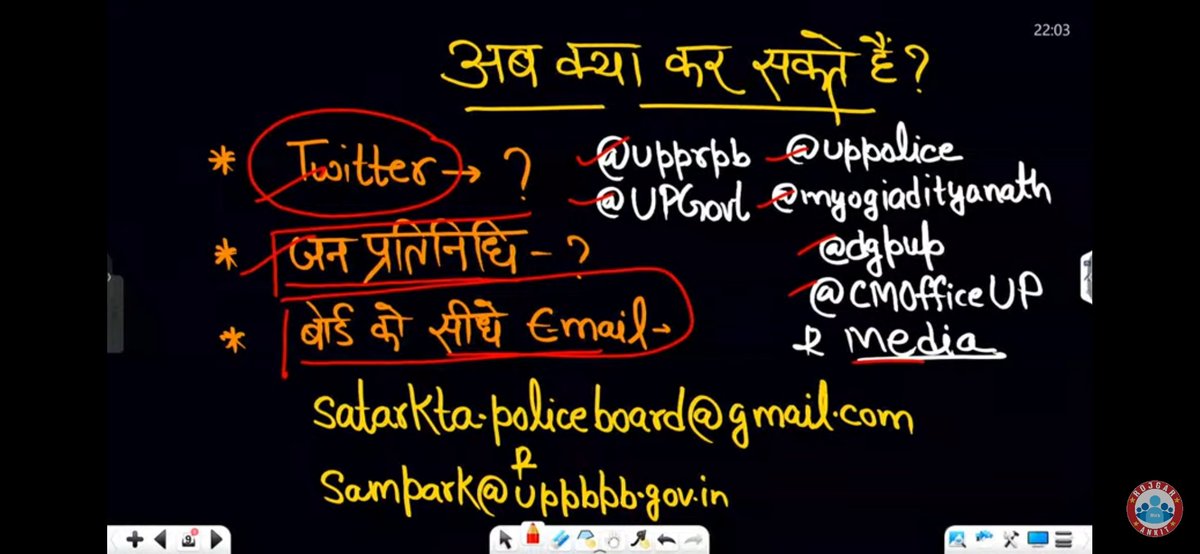 22:03
अब क्या कर सकते हैं?
* Twitter → ?
@upprpb @uppolice
@UPGovt @myogiadityanath
* जन प्रतिनिधि - ?
@dgpup
@CMOfficeUP
* बोर्ड को सीधे Email →
& Media
satarkta.policeboard@gmail.com
&
Sampark@uppbpb.gov.in
ROJGAR
ANKIT